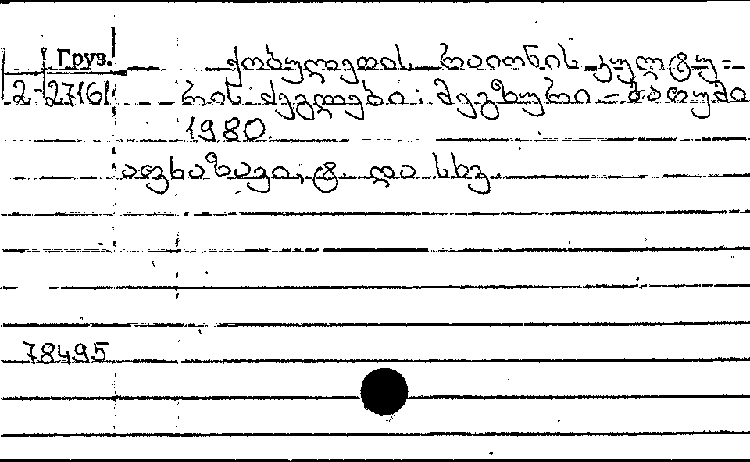 Груз. ქობულეთის რაიონის კულტუ-
2-27161 რის ძეგლები: მეგზური - ბათუმი
1980
აფხაზავა, ტ. და სხვ.
78495